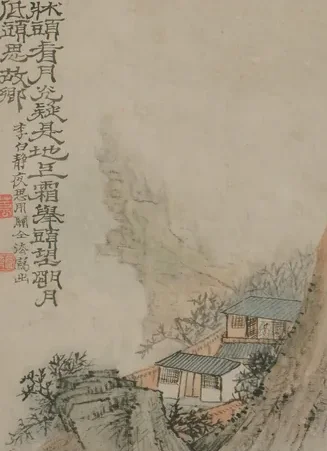 牀頭看月光疑是地上霜舉頭望朙月
低頭思故鄉
李白靜夜思用關仝法寫出